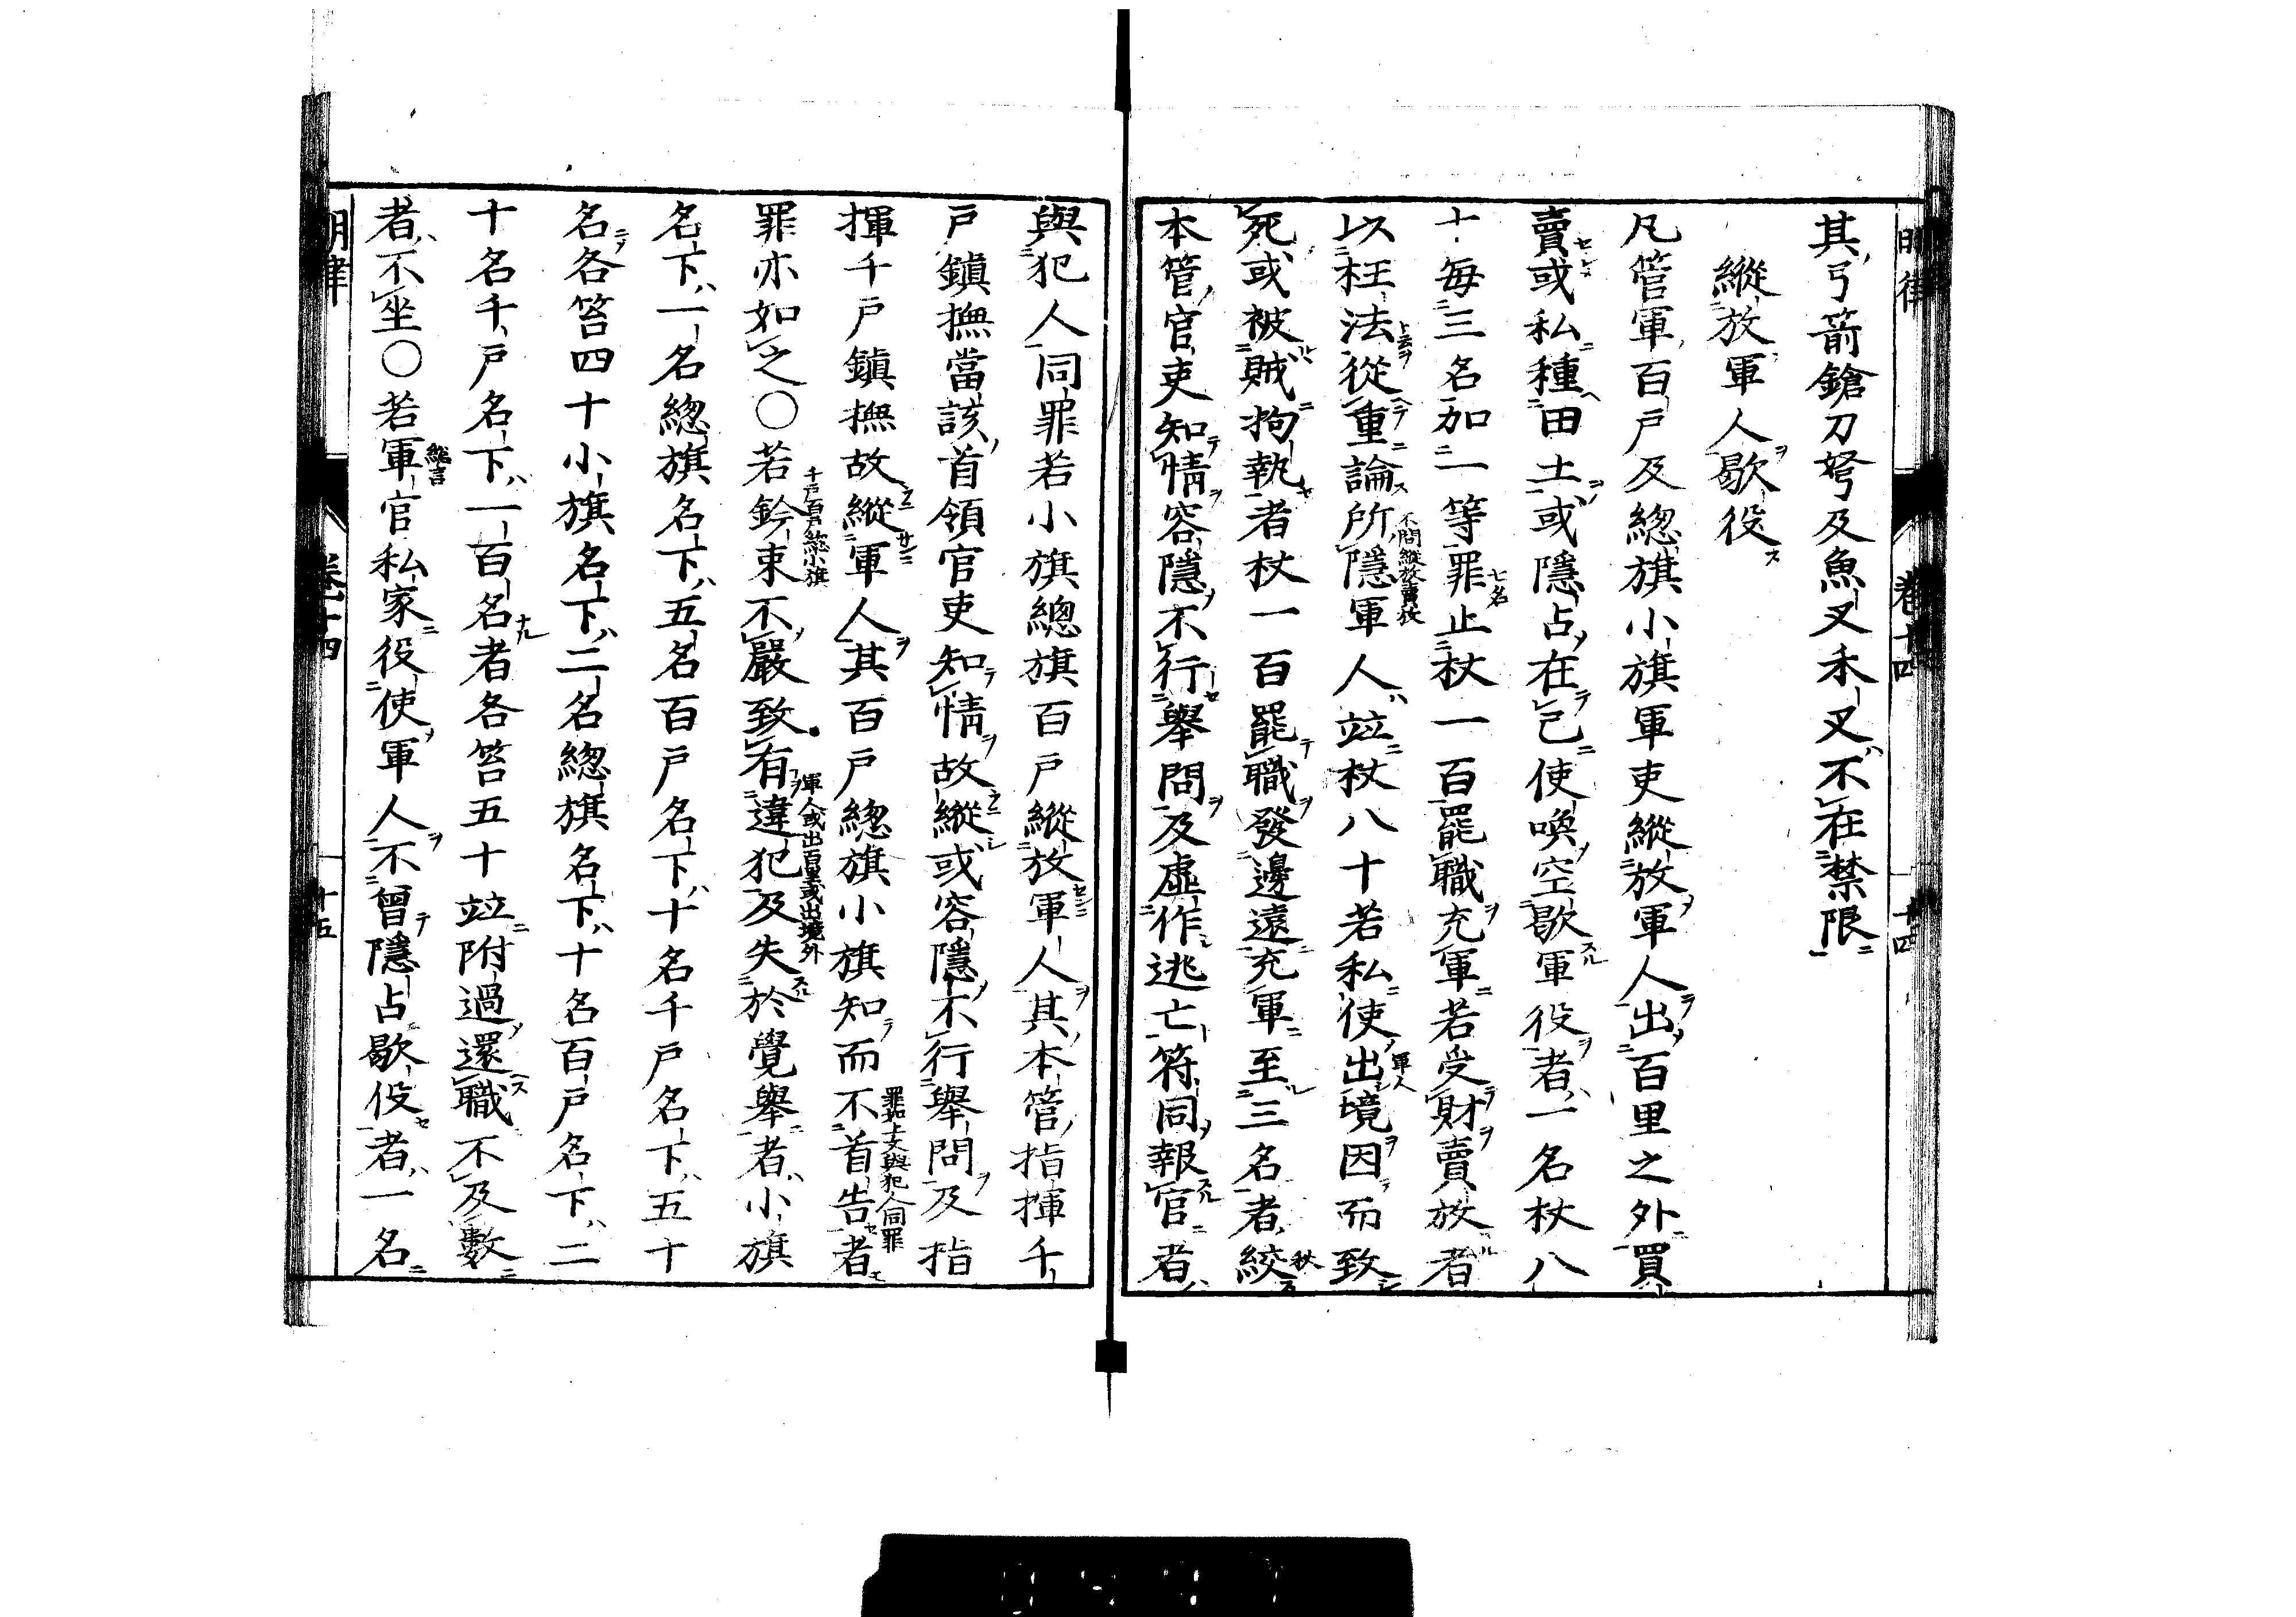 明律 卷十四 十四
其弓箭鎗刀弩及魚叉禾叉不在禁限
縱放軍人歇役
凡管軍百戶及總旗小旗軍吏縱放軍人出百里之外買
賣或私種田土或隱占在己使喚空歇軍役者一名杖八
十每三名加一等罪止杖一百罷職充軍若受財賣放者
以枉法從重論所隱軍人竝杖八十若私使出境因而致
死或被賊拘執者杖一百罷職發邊遠充軍至三名者絞
本管官吏知情容隱不行舉問及虛作逃亡符同報官者
與犯人同罪若小旗總旗百戶縱放軍人其本管指揮千
戶鎮撫當該首領官吏知情故縱或容隱不行舉問及指
揮千戶鎮撫故縱軍人其百戶總旗小旗知而不首告者
罪亦如之〇若鈐束不嚴致有違犯及失於覺舉者小旗
名下一名總旗名下五名百戶名下十名千戶名下五十
名各笞四十小旗名下二名總旗名下十名百戶名下二
十名千戶名下一百名者各笞五十竝附過還職不及數
者不坐〇若軍官私家役使軍人不曾隱占歇役者一名
明律 卷十四 十五